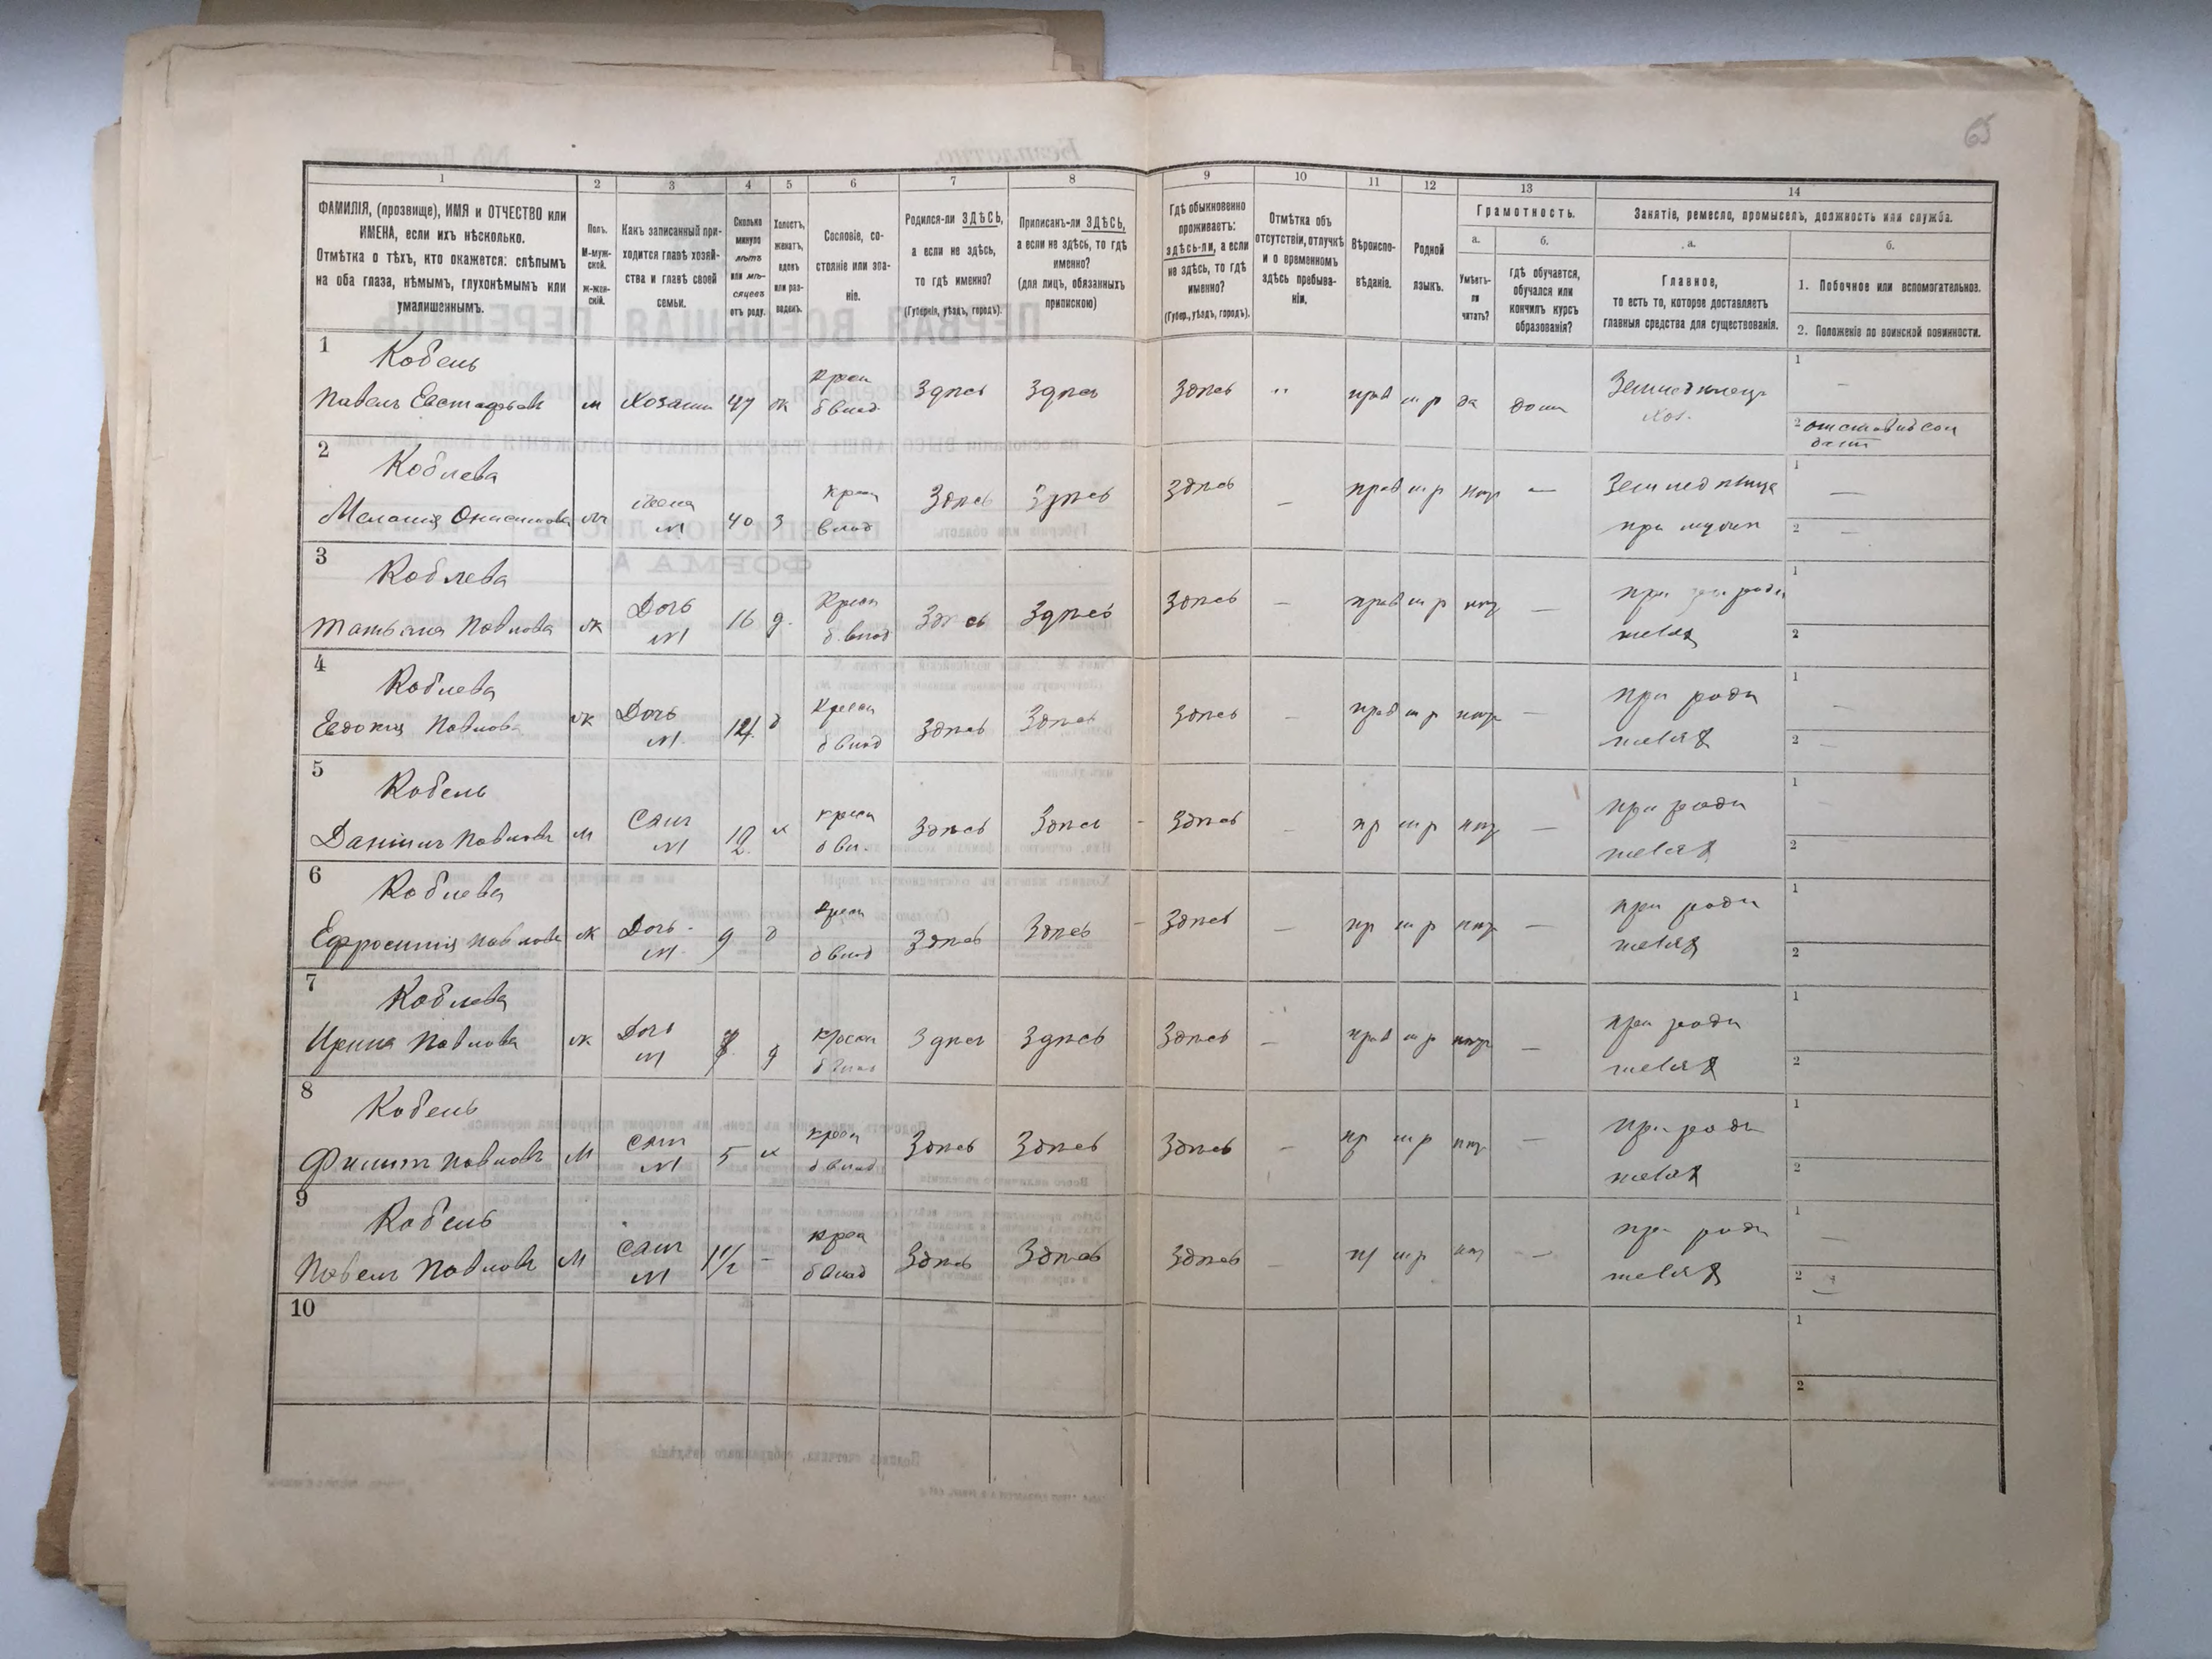 65
1 2 3 4 5 6 7 8 9 10 11 12 13 14
ФАМИЛІЯ, (прозвище), ИМЯ и ОТЧЕСТВО или
ИМЕНА, если ихъ нѣсколько.
Отмѣтка о тѣхъ, кто окажется: слѣпымъ
на оба глаза, нѣмымъ, глухонѣмымъ или
умалишеннымъ.
Полъ.
М-муж-
ской.
ж-жен-
скій.
Какъ записанный при-
ходится главѣ хозяй-
ства и главѣ своей
семьи.
Сколько
минуло
лѣтъ
или мѣ-
сяцевъ
отъ роду.
Холостъ,
женатъ,
вдовъ
или раз-
веденъ.
Сословіе, со-
стояніе или зва-
ніе.
Родился-ли ЗДѢСЬ,
а если не здѣсь,
то гдѣ именно?
(Губернія, уѣздъ, городъ).
Приписанъ-ли ЗДѢСЬ,
а если не здѣсь, то гдѣ
именно?
(для лицъ, обязанныхъ
припискою)
Гдѣ обыкновенно
проживаетъ:
здѣсь-ли, а если
не здѣсь, то гдѣ
именно?
(Губер., уѣздъ, городъ).
Отмѣтка объ
отсутствіи, отлучкѣ
и о временномъ
здѣсь пребыва-
ніи.
Вѣроиспо-
вѣданіе.
Родной
языкъ.
Грамотность.
а.
Умѣетъ-
ли
читать?
б.
гдѣ обучается,
обучался или
кончилъ курсъ
образованія?
Занятіе, ремесло, промыселъ, должность или служба.
а.
Главное,
то есть то, которое доставляетъ
главныя средства для существованія.
б.
1. Побочное или вспомогательное.
2. Положеніе по воинской повинности.
1 Кобель
Павелъ Евстафьевъ м Хозяинъ 47 ж Крест б влад Здѣсь Здѣсь Здѣсь " прав м р да дома Земледѣлецъ Хоз. 1 —
2 отставной сол
датъ
2 Коблева
Мелания Онисимова ж жена м 40 з Крест б влад Здѣсь Здѣсь Здѣсь — прав м р нѣт — Земледѣлица 1 —
при мужѣ 2 —
3 Коблева
Татьяна Павлова ж Дочь м 16 д. Крест б. влад Здѣсь Здѣсь Здѣсь — прав м р нѣт — при роди 1
теляхъ 2
4 Коблева
Евдокия Павлова ж Дочь м. 14 д Крест б влад Здѣсь Здѣсь Здѣсь — прав м р нѣт — при роди 1 —
теляхъ 2 —
5 Кобель
Даниилъ Павловъ м Сынъ м 12 х Крест б вл. Здѣсь Здѣсь Здѣсь — пр м р нѣт — при роди 1
теляхъ 2
6 Коблева
Ефросиния Павлова ж Дочь м. 9 д Крест б влад Здѣсь Здѣсь Здѣсь — пр м р нѣт — при роди 1
теляхъ 2
7 Коблева
Ирина Павлова ж Дочь м д Крест б влад Здѣсь Здѣсь Здѣсь — прав м р нѣт — при роди 1
теляхъ 2
8 Кобель
Филипъ Павловъ м Сынъ м 5 х Крест б влад Здѣсь Здѣсь Здѣсь — пр м р нѣт — при роди 1
теляхъ 2
9 Кобель
Павелъ Павловъ м Сынъ м 1½ — Крест б влад Здѣсь Здѣсь Здѣсь — пр м р нѣт — при роди 1 —
теляхъ 2
10 1
2